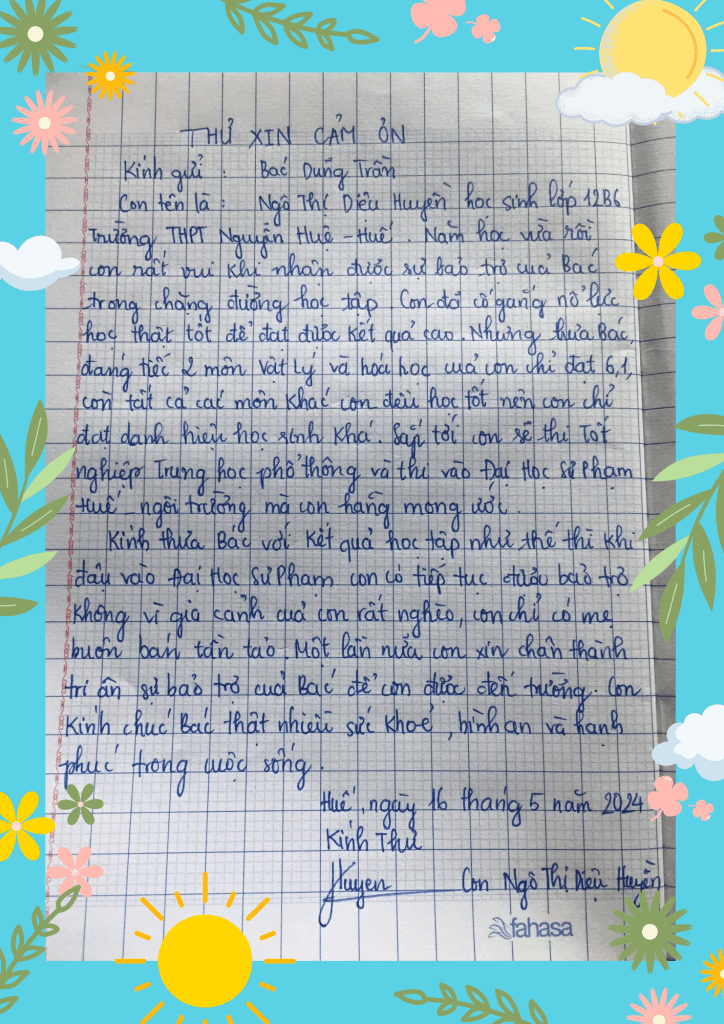 THƯ XIN CẢM ƠN
Kính gửi : Bác Dũng Trần
Con tên là : Ngô Thị Diệu Huyền học sinh lớp 12B6
Trường THPT Nguyễn Huệ - Huế. Năm học vừa rồi
con rất vui khi nhận được sự bảo trợ của Bác
trong chặng đường học tập. Con đã cố gắng nỗ lực
học thật tốt để đạt được kết quả cao. Nhưng thưa Bác,
đáng tiếc 2 môn Vật Lý và hoá học của con chỉ đạt 6,1,
còn tất cả các môn khác con đều học tốt nên con chỉ
đạt danh hiệu học sinh Khá. Sắp tới con sẽ thi Tốt
nghiệp Trung học phổ thông và thi vào Đại Học Sư Phạm
Huế - ngôi trường mà con hằng mong ước.
Kính thưa Bác với kết quả học tập như thế thì khi
đậu vào Đại Học Sư Phạm con có tiếp tục được bảo trợ
không vì gia cảnh của con rất nghèo, con chỉ có mẹ
buôn bán tần tảo. Một lần nữa con xin chân thành
tri ân sự bảo trợ của Bác để con được đến trường. Con
Kính chúc Bác thật nhiều sức khoẻ, bình an và hạnh
phúc trong cuộc sống.
Huế, ngày 16 tháng 5 năm 2024
Kính Thư
Huyen Con Ngô Thị Diệu Huyền
fahasa